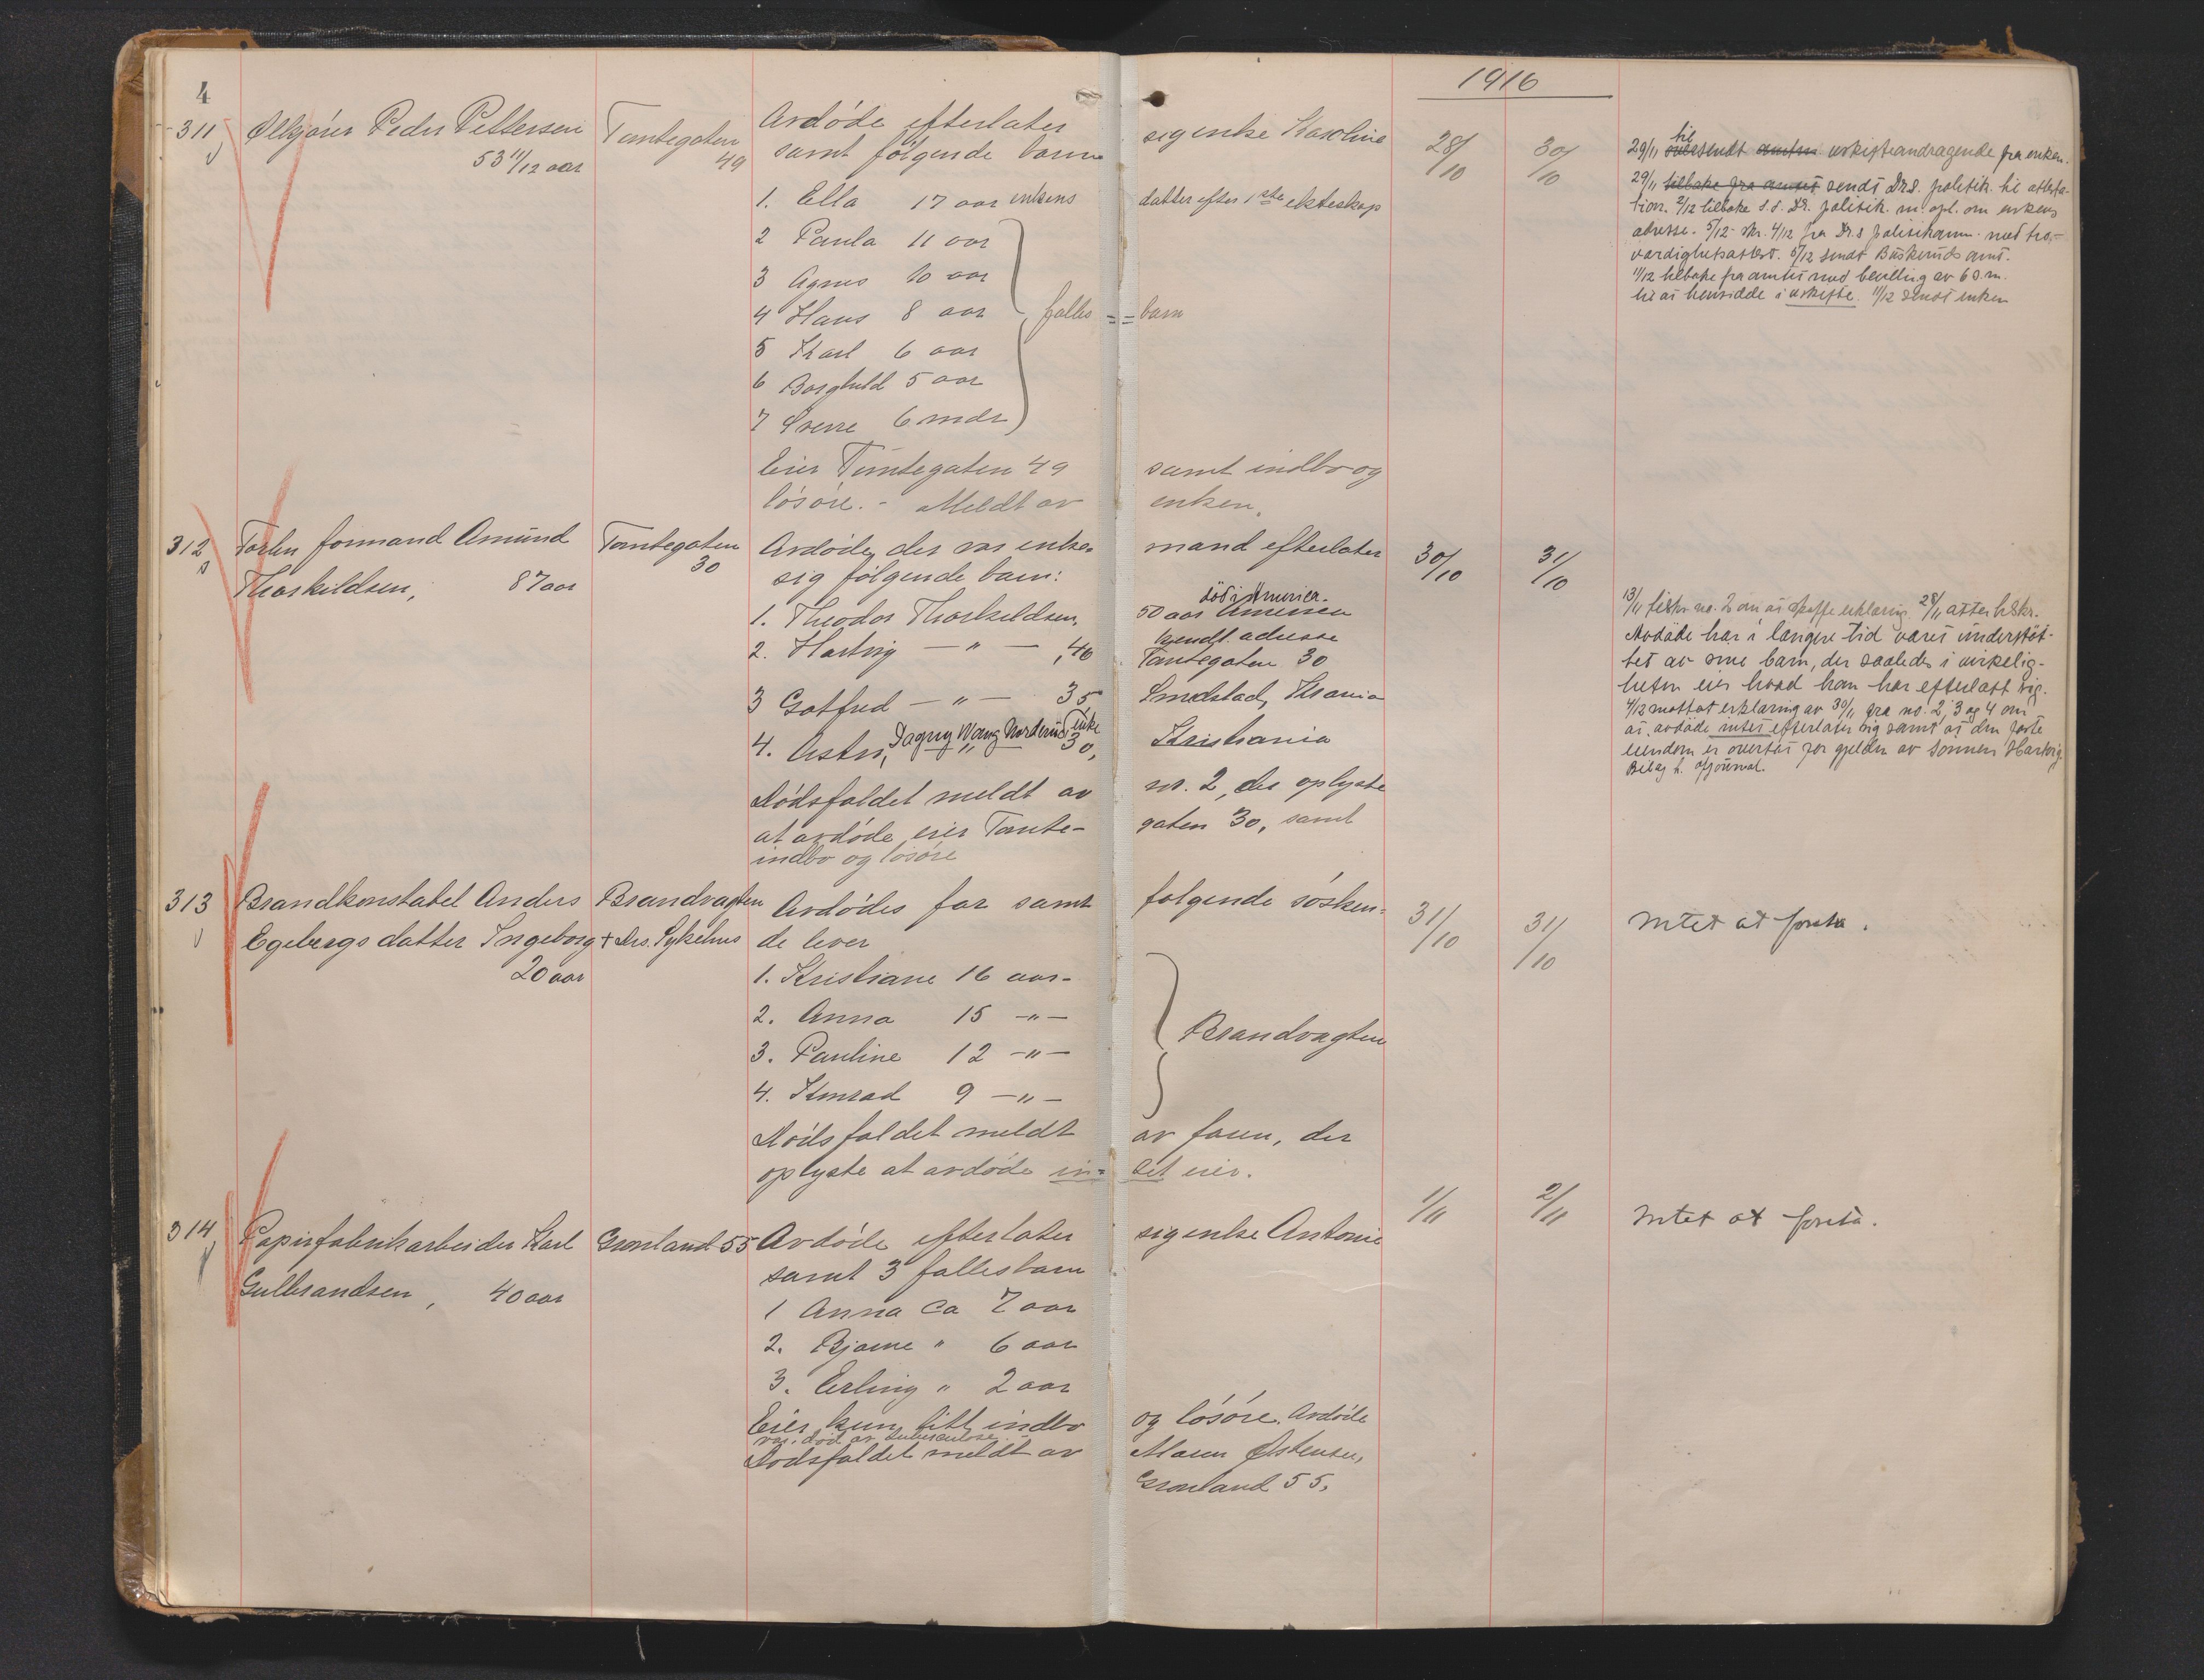 4
1916
311 Ølkjører Peder Pettersen Tomtegaten Avdøde efterlater sig enke Karoline 28/10 30/10
53 11/12 aar 49 samt følgende barn
1. Ella 17 aar enkens datter efter 1ste ekteskap
2 Paula 11 aar
3 Agnes 10 aar
4 Hans 8 aar fælles = = barn
5 Karl 6 aar
6 Borghild 5 aar
7 Sverre 6 mdr
Eier Tomtegaten 49 samt indbo og
løsøre. - Meldt av enken.
til
29/11 oversendt amtm uskifteandragende fra enken.
29/11 tilbake fra amtet sendt Dr.s. politik. til attesta-
tion. 2/12 tilbake s.d. Dr. politik. m. opl. om enkens
adresse. 5/12 skr. 4/12 fra Dr.s politikam. med tro-
værdighetsattest. 5/12 sendt Buskeruds amt.
11/12 tilbake fra amtet med bevilling av 6 s.m.
til at hensidde i uskifte. 11/12 sendt enken
312 Forhv formand Amund Tomtegaten Avdøde, der var enke- mand efterlater 30/10 31/10
Thorkildsen, 87 aar 30 sig følgende barn:
død i Amerika.
1. Theodor Thorkildsen, 50 aar Amerika
ukendt adresse
2. Hartvig — " — , 40 Tomtegaten 30
3 Gotfred — " — 35 Smedstad, Krania
Dagny Wang Norderud enke
4. Astri, " 30, Kristiania
Dødsfaldet meldt av nr. 2, der oplyste
at avdøde eier Tomte- gaten 30, samt
indbo og løsøre
13/11 tilskr. no. 2 om at skaffe erklæring. 28/11 atter tilskr.
Avdøde har i længere tid været understøt-
tet av sine barn, der saaledes i virkelig-
heten eier hvad han har efterlatt sig.
4/12 mottat erklæring av 30/11 fra no. 2, 3 og 4 om
at avdøde intet efterlater sig samt at den faste
eiendom er overtat for gjelden av sønnen Hartvig.
Bilag t. dfjournal.
313 Brandkonstabel Anders Brandvagten Avdødes far samt følgende søsken- 31/10 31/10 Intet at foreta.
Egebergs datter Ingeborg + Drs. Sykehus de lever
20 aar
1. Kristiane 16 aar-
2. Anna 15 —"—
3. Pauline 12 —"— Brandvagten
4. Konrad 9 —"—
Dødsfaldet meldt av faren, der
oplyste at avdøde in= tet eier.
314 Papirfabrikarbeider Karl Grønland 55 Avdøde efterlater sig enke Antonie 1/11 2/11 Intet at foreta.
Gulbrandsen, 40 aar samt 3 fællesbarn
1 Anna ca 7 aar
2. Bjarne " 6 aar
3. Erling " 2 aar
Eier kun litt indbo og løsøre. Avdøde
var død av tuberculose.
Dødsfaldet meldt av Maren Østensen,
Grønland 55.